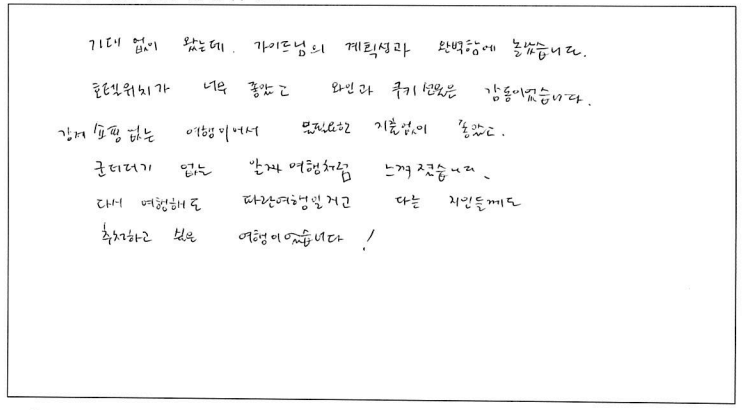 기대 없이 왔는데. 가이드님의 계획성과 완벽함에 놀랐습니다.
호텔위치가 너무 좋았고 와인과 쿠키 선물은 감동이었습니다.
강제 쇼핑 없는 여행이어서 불필요한 지출없이 좋았고.
군더더기 없는 알짜 여행처럼 느껴졌습니다.
다시 여행해도 파란여행일거고 다른 지인들께도
추천하고 싶은 여행이었습니다!